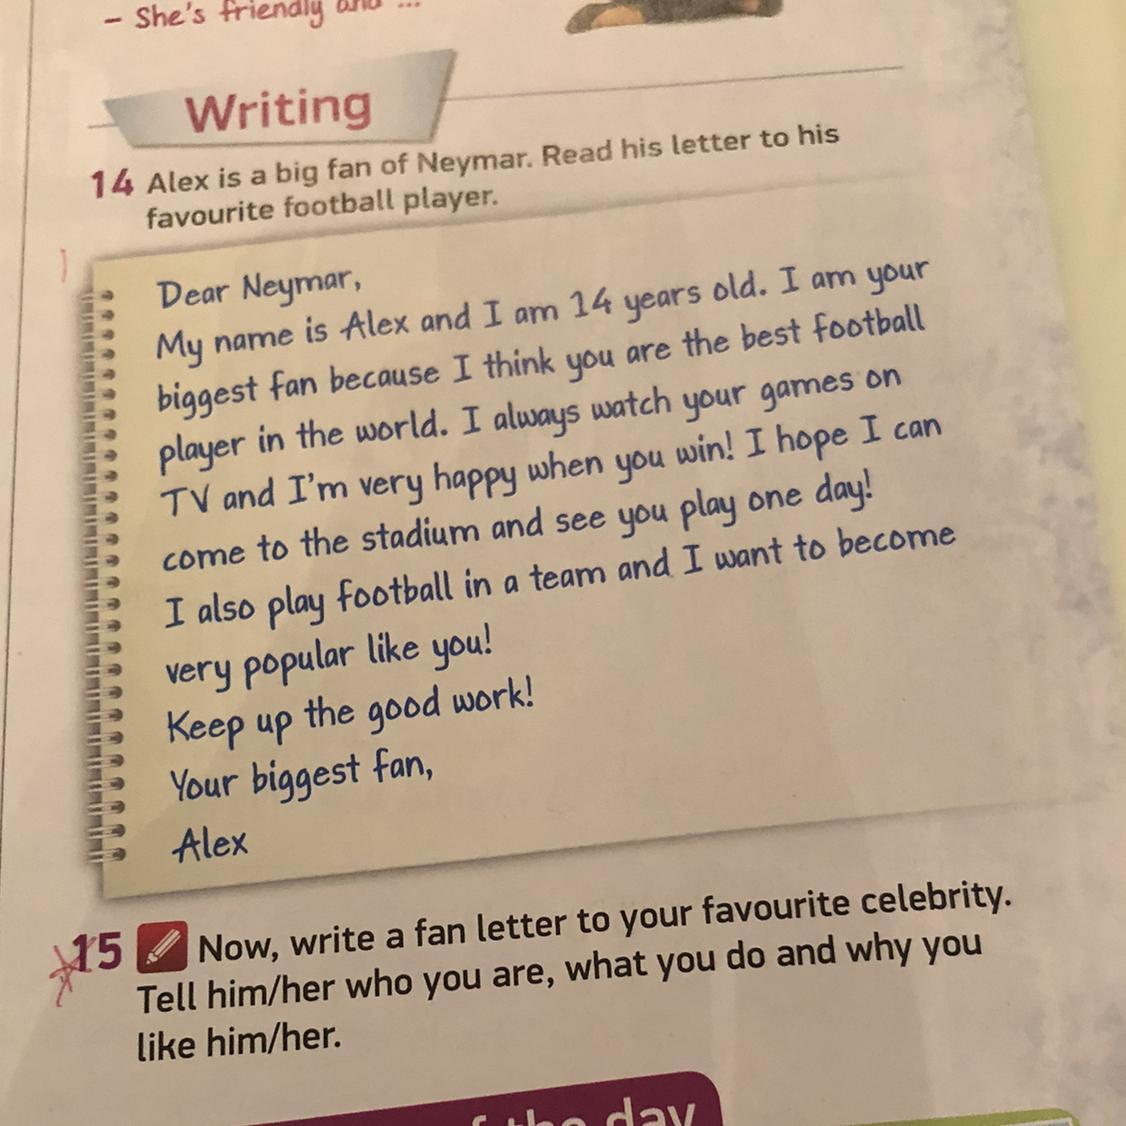 - She's friendly and ...
Writing
14 Alex is a big fan of Neymar. Read his letter to his
favourite football player.
Dear Neymar,
My name is Alex and I am 14 years old. I am your
biggest fan because I think you are the best football
player in the world. I always watch your games on
TV and I'm very happy when you win! I hope I can
come to the stadium and see you play one day!
I also play football in a team and I want to become
very popular like you!
Keep up the good work!
Your biggest fan,
Alex
15 Now, write a fan letter to your favourite celebrity.
Tell him/her who you are, what you do and why you
like him/her.
of the day